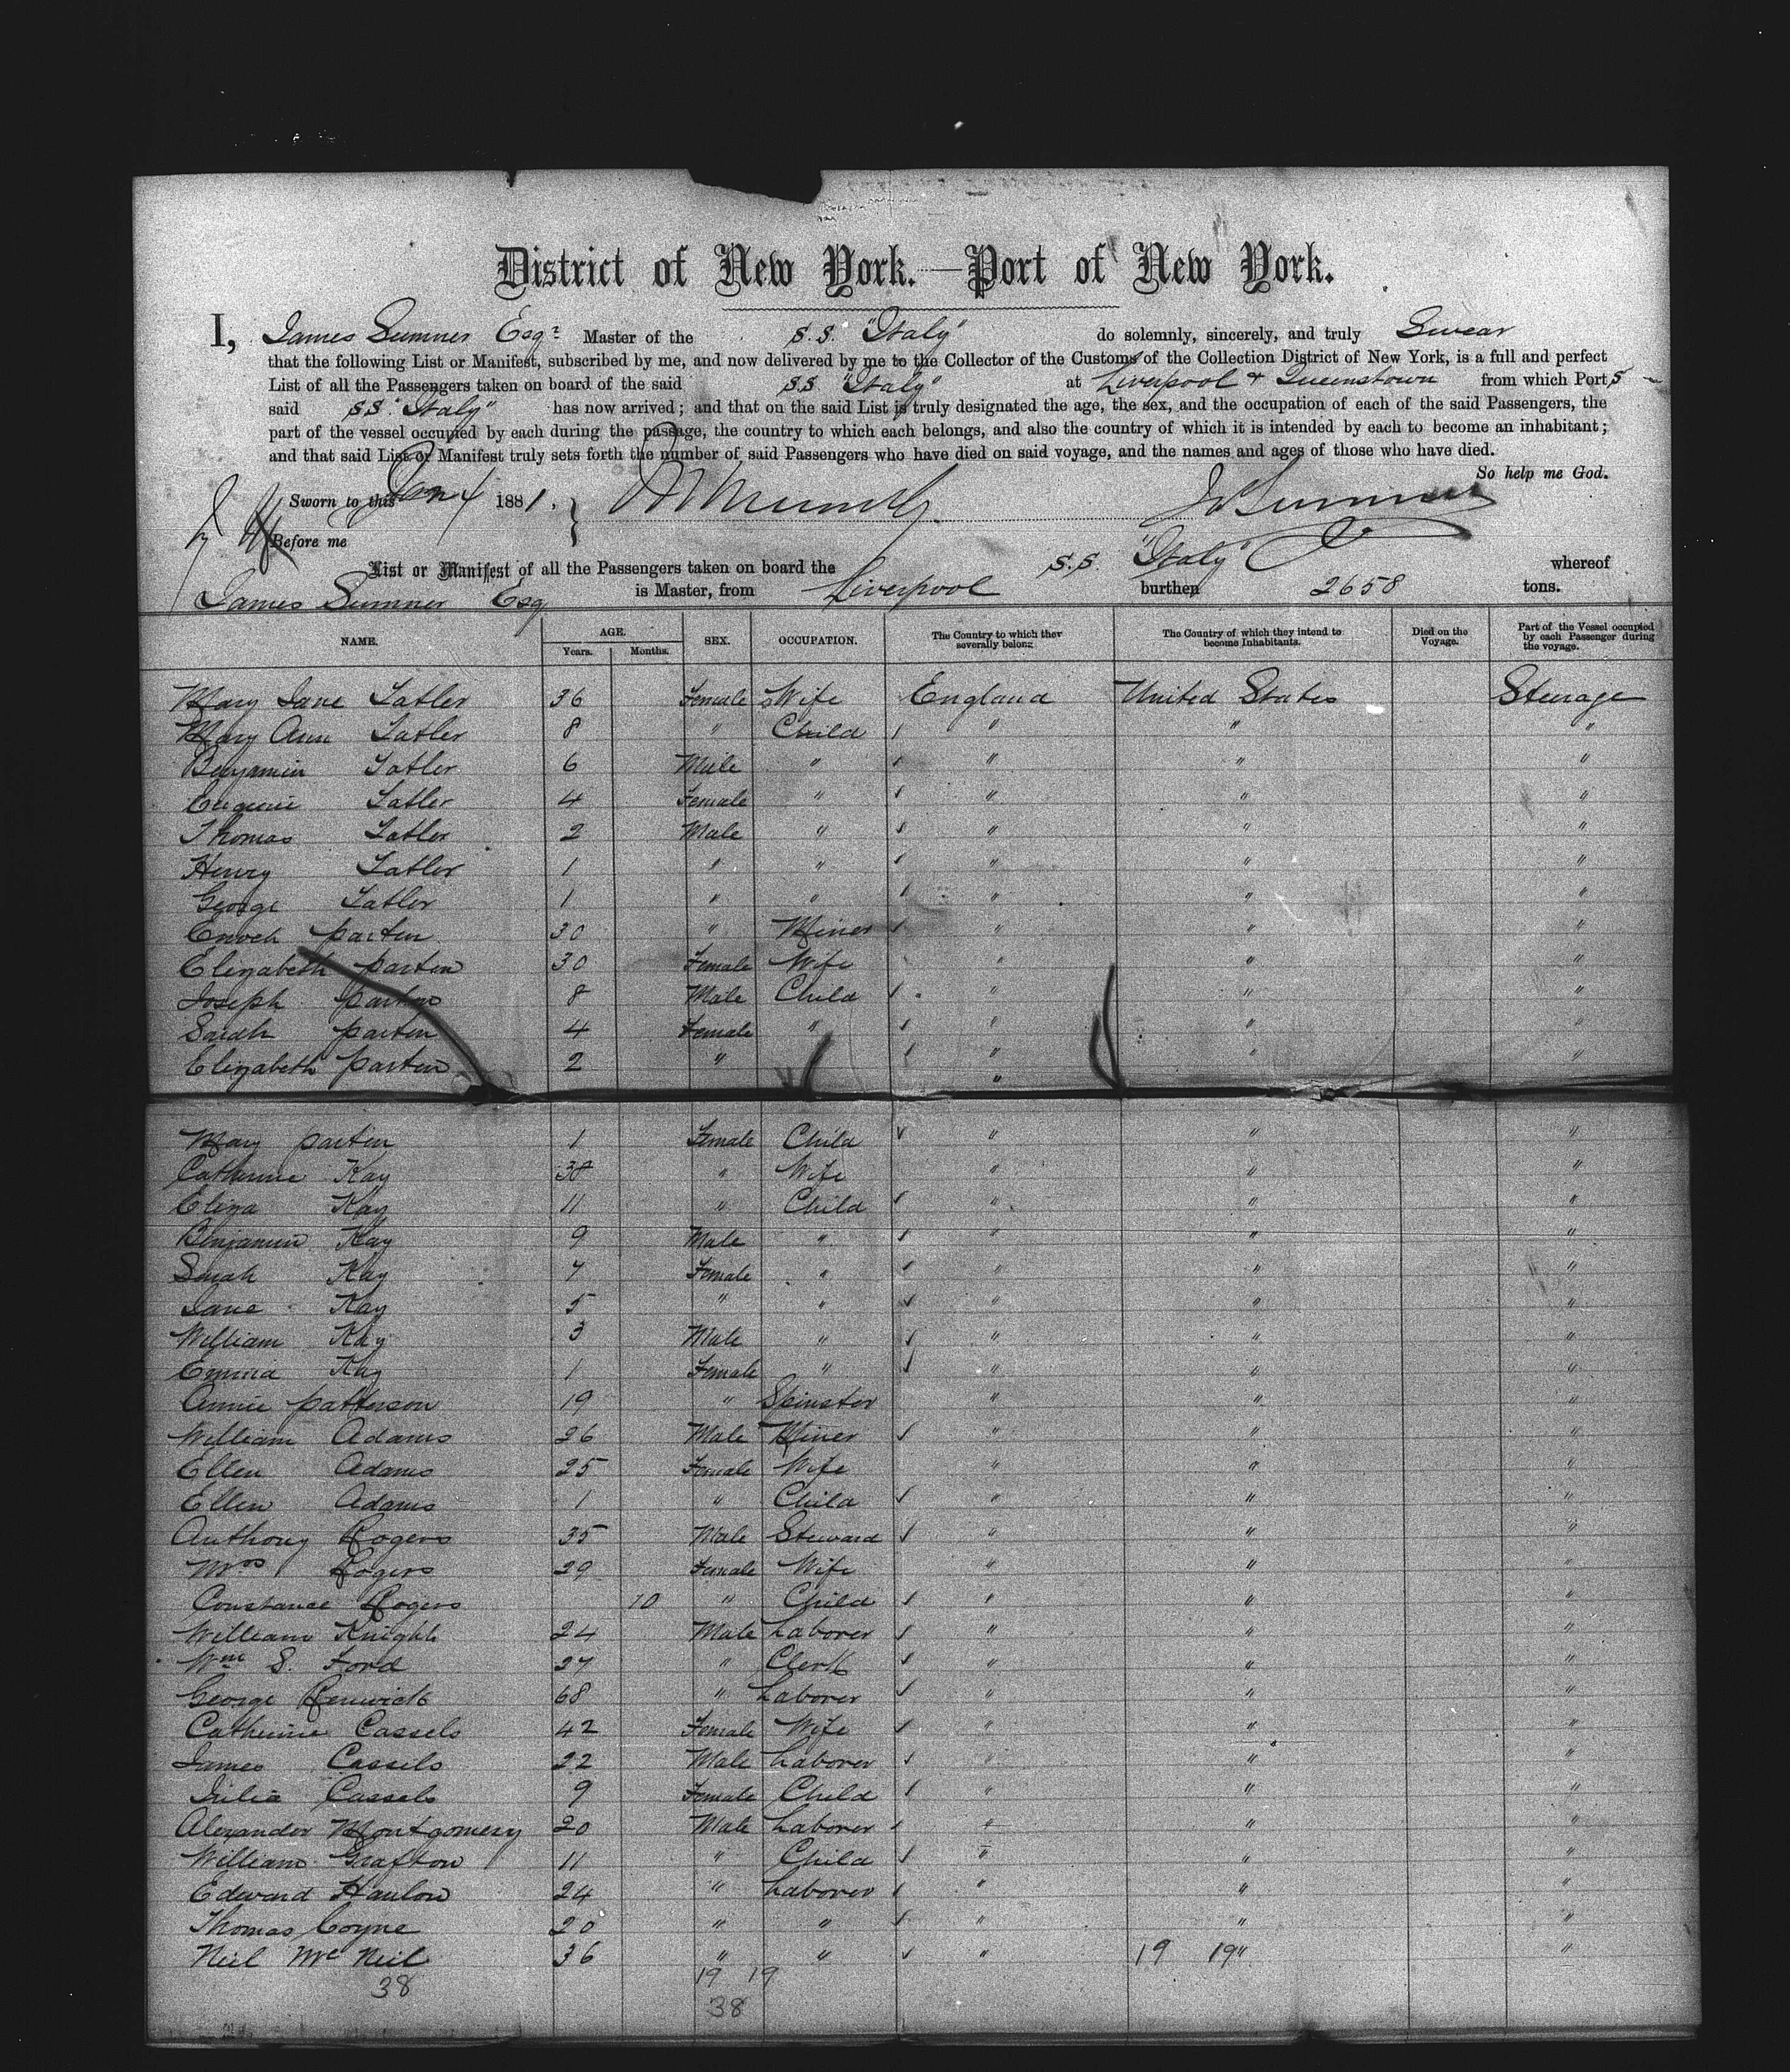 District of New York.—Port of New York.
I, James Sumner Esqr Master of the S.S. "Italy" do solemnly, sincerely, and truly Swear
that the following List or Manifest, subscribed by me, and now delivered by me to the Collector of the Customs of the Collection District of New York, is a full and perfect
List of all the Passengers taken on board of the said S.S "Italy" at Liverpool + Queenstown from which Port s
said S.S. "Italy" has now arrived; and that on the said List is truly designated the age, the sex, and the occupation of each of the said Passengers, the
part of the vessel occupied by each during the passage, the country to which each belongs, and also the country of which it is intended by each to become an inhabitant;
and that said List or Manifest truly sets forth the number of said Passengers who have died on said voyage, and the names and ages of those who have died.
So help me God.
Sworn to this Jan 4 1881. Js Sumner
Before me
List or Manifest of all the Passengers taken on board the S.S. "Italy" whereof
James Sumner Esq is Master, from Liverpool burthen 2658 tons.
NAME. AGE. Years. Months. SEX. OCCUPATION. The Country to which they severally belong. The Country of which they intend to become Inhabitants. Died on the Voyage. Part of the Vessel occupied by each Passenger during the voyage.
Mary Jane Tatler 36 Female Wife England United States Steerage
Mary Ann Tatler 8 " Child " " "
Benjamin Tatler 6 Male " " " "
Eugenie Tatler 4 Female " " " "
Thomas Tatler 2 Male " " " "
Henry Tatler 1 " " " " "
George Tatler 1 " " " " "
Enoch Parten 30 " Miner " " "
Elizabeth Parten 30 Female Wife " " "
Joseph Parten 8 Male Child " " "
Sarah Parten 4 Female " " " "
Elizabeth Parten 2 " " " "
Mary Parten 1 Female Child " " "
Catherine Kay 38 " Wife " " "
Eliza Kay 11 " Child " " "
Benjamin Kay 9 Male " " " "
Sarah Kay 7 Female " " " "
Jane Kay 5 " " " " "
William Kay 3 Male " " " "
Emma Kay 1 Female " " " "
Annie Patterson 19 " Spinster " " "
William Adams 26 Male Miner " " "
Ellen Adams 25 Female Wife " " "
Ellen Adams 1 " Child " " "
Anthony Rogers 35 Male Steward " " "
Mrs Rogers 29 Female Wife " " "
Constance Rogers 10 " Child " " "
William Knight 24 Male Laborer " " "
Wm S. Ford 27 " Clerk " " "
George Renwick 68 " Laborer " " "
Catherine Cassels 42 Female Wife " " "
James Cassels 22 Male Laborer " " "
Julia Cassels 9 Female Child " " "
Alexander Montgomery 20 Male Laborer " " "
William Grafton 11 " Child " " "
Edward Hanlon 24 " Laborer " " "
Thomas Coyne 20 " " " " "
Neil Mc Neil 36 " " " 19 19 " "
38 19 19
38